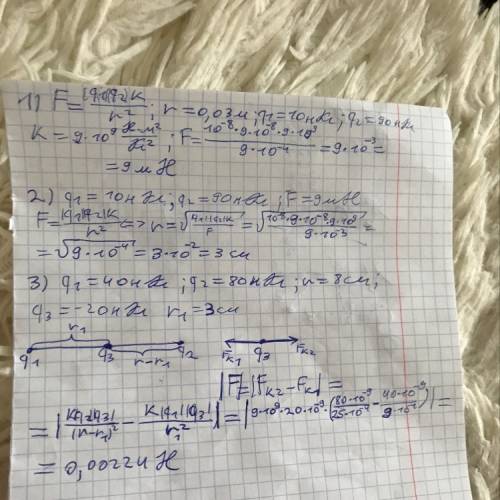 1) F = |q1||q2|K / r² ; r = 0,03м; q1 = 10нКл; q2 = 90нКл
K = 9·10⁹ Н·м²/Кл² ; F = 10⁻⁸·9·10⁻⁸·9·10⁹ / 9·10⁻⁴ = 9·10⁻³ =
= 9мН
2) q1 = 10нКл; q2 = 90нКл; F = 9мН
F = |q1||q2|K / r² <=> r = √(|q1||q2|K / F) = √(10⁻⁸·9·10⁻⁸·9·10⁹ / 9·10⁻³) =
= √(9·10⁻⁴) = 3·10⁻² = 3см
3) q1 = 40нКл; q2 = 80нКл; r = 8см;
q3 = -20нКл r1 = 3см
r1
q1 q3 q2 Fк1 q3 Fк2
r-r1
|F| = |Fк2 - Fк1| =
= |K|q2||q3| / (r-r1)² - K|q1||q3| / r1²| = |9·10⁹·20·10⁻⁹·(80·10⁻⁹ / 25·10⁻⁴ - 40·10⁻⁹ / 9·10⁻⁴)| =
= 0,00224 Н